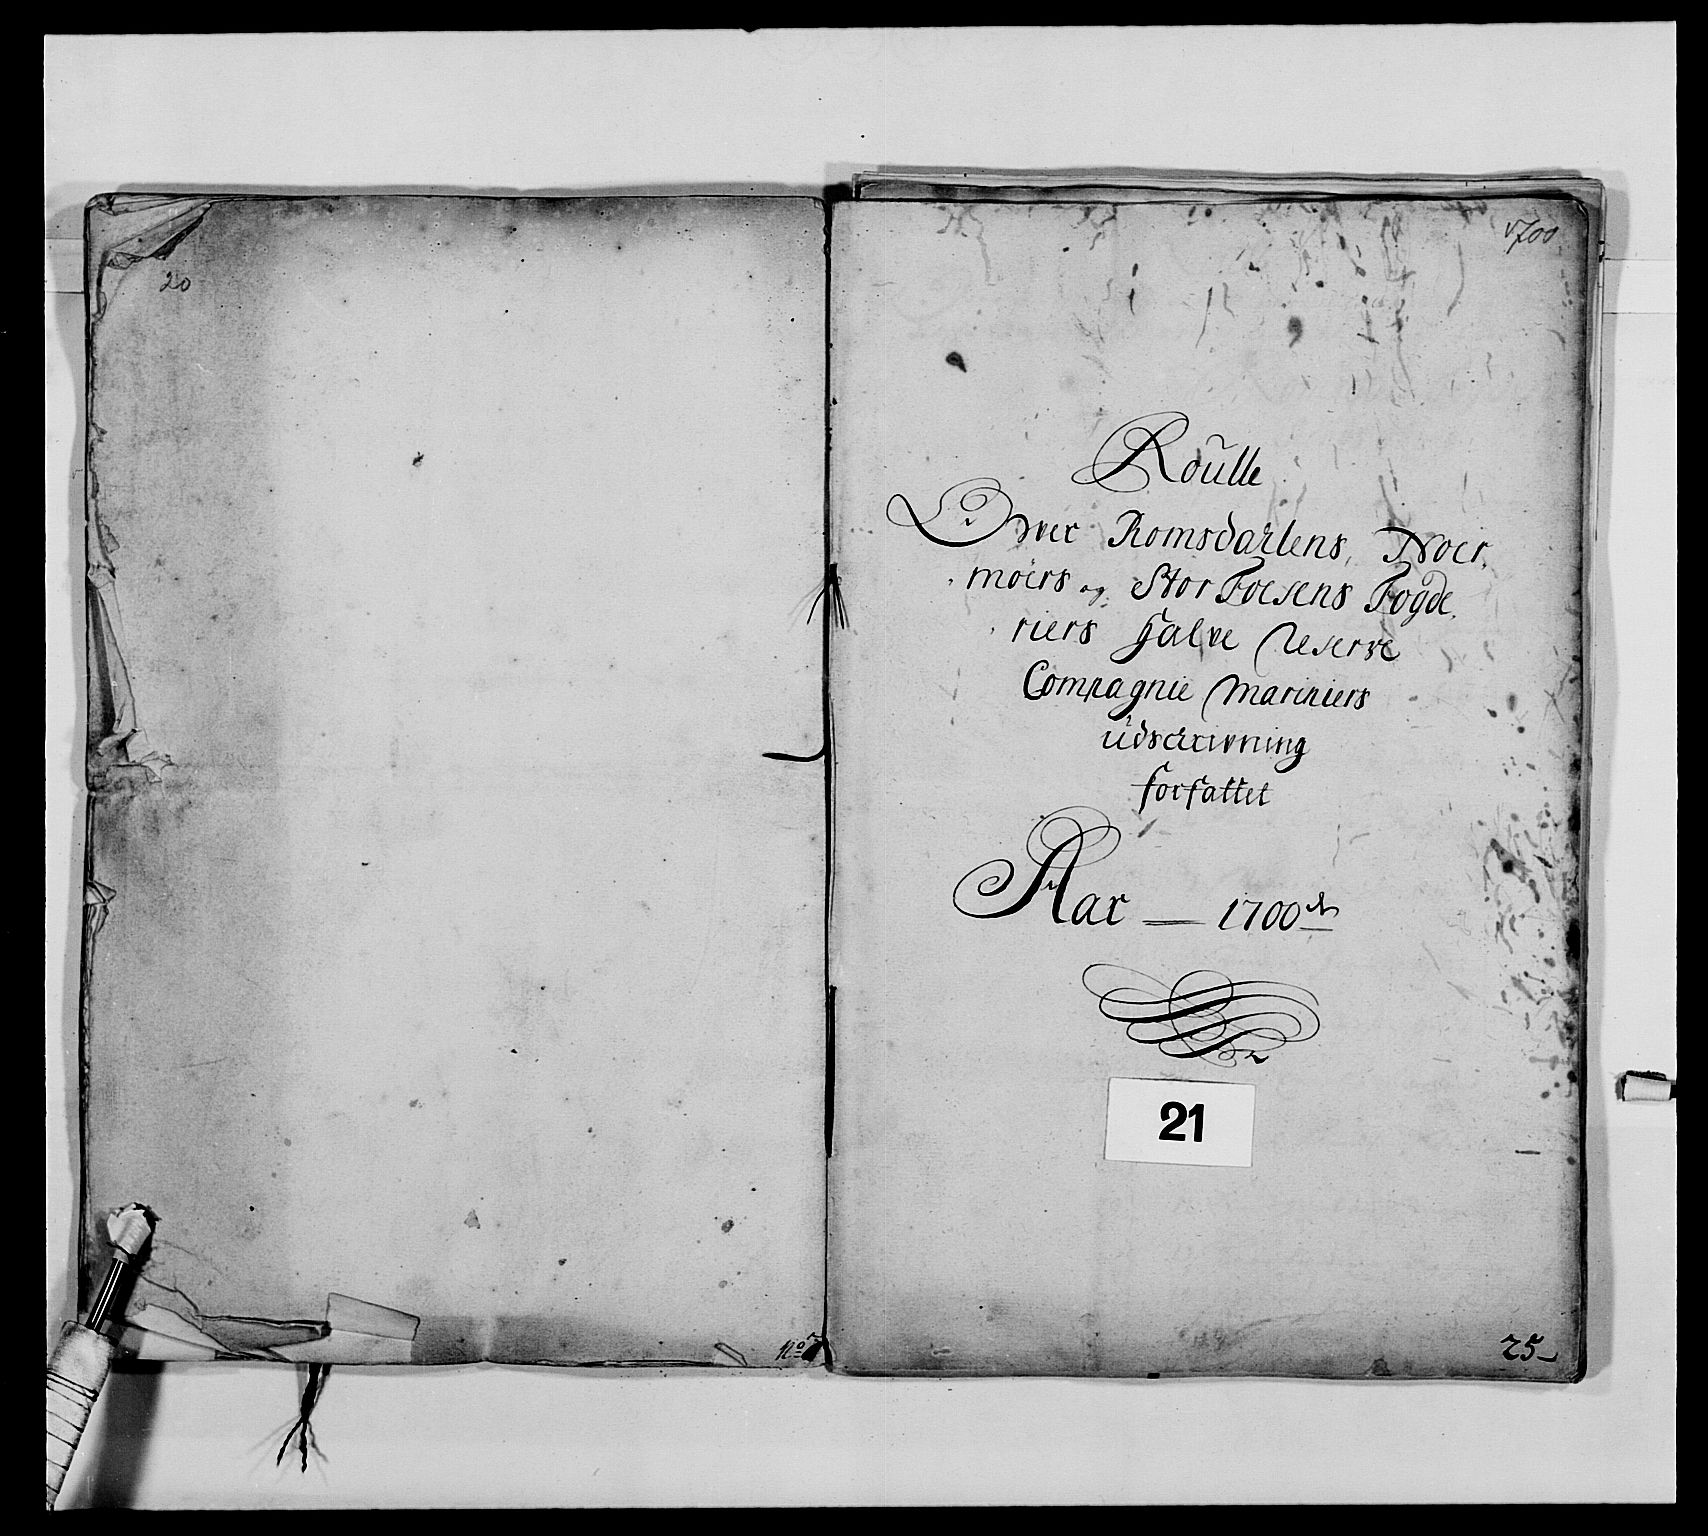 20
No
1700
Roulle
Over Romsdahlens, Noer,
moërs og StorFoesens Fogde,
riers halve Reserve
Compagnie Mariniers
Udschrivning
forfattet
Aar — 1700
21
25